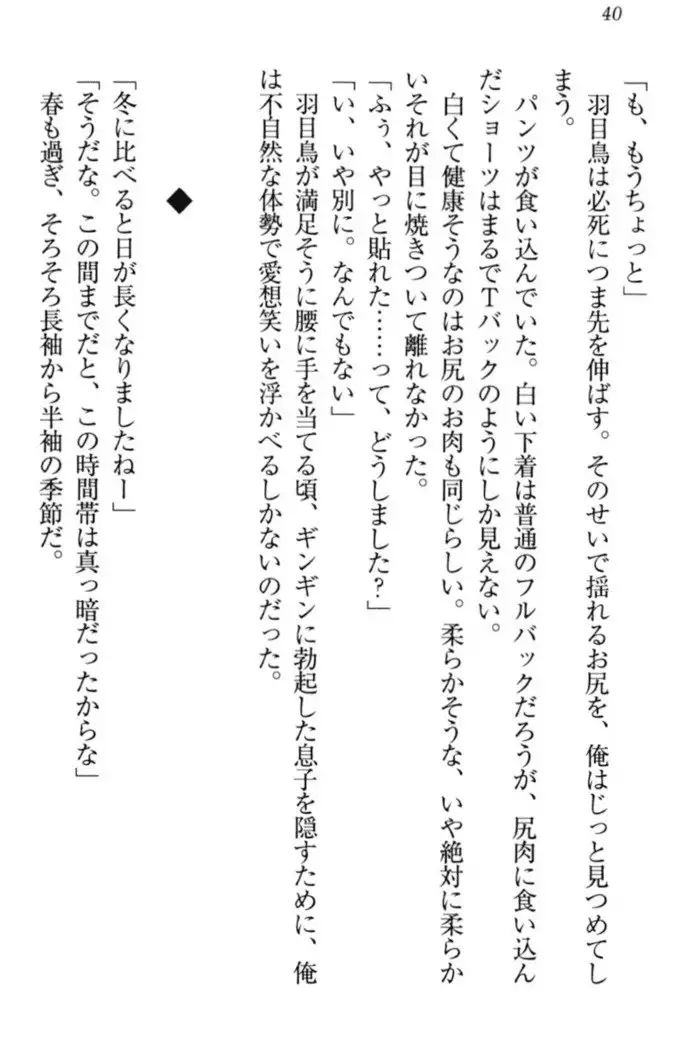 40
「も、もうちょっと」
羽目鳥は必死につま先を伸ばす。そのせいで揺れるお尻を、俺はじっと見つめてし
まう。
パンツが食い込んでいた。白い下着は普通のフルバックだろうが、尻肉に食い込ん
だショーツはまるでTバックのようにしか見えない。
白くて健康そうなのはお尻のお肉も同じらしい。柔らかそうな、いや絶対に柔らか
いそれが目に焼きついて離れなかった。
「ふぅ、やっと貼れた……って、どうしました？」
「い、いや別に。なんでもない」
羽目鳥が満足そうに腰に手を当てる頃、ギンギンに勃起した息子を隠すために、俺
は不自然な体勢で愛想笑いを浮かべるしかないのだった。
◆
「冬に比べると日が長くなりましたねー」
「そうだな。この間までだと、この時間帯は真っ暗だったからな」
春も過ぎ、そろそろ長袖から半袖の季節だ。